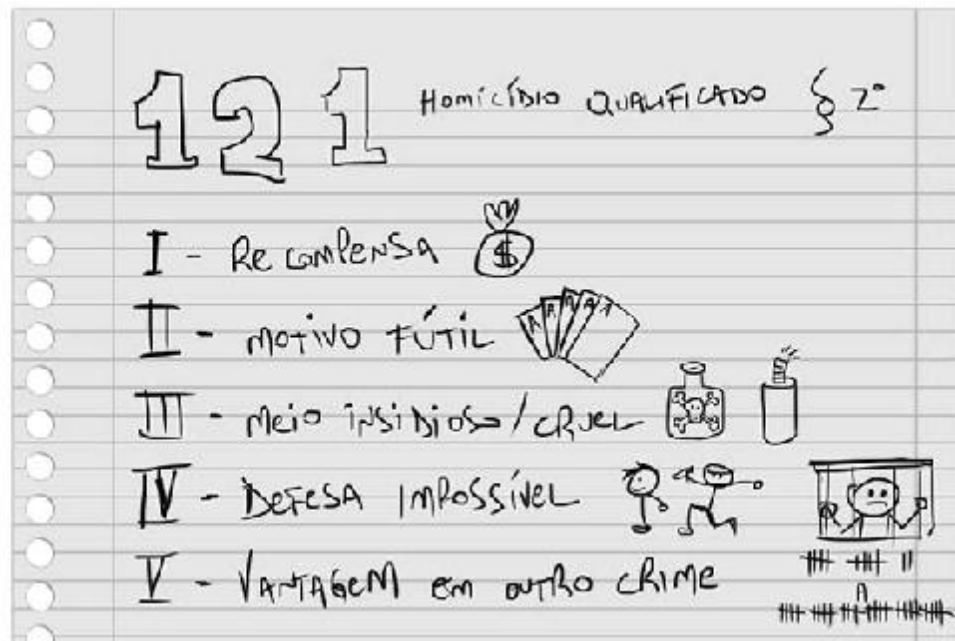 121 Homicídio Qualificado § 2°
I - Recompensa $
II - Motivo Fútil A A A A A
III - Meio insidioso/cruel
IV - Defesa Impossível
V - Vantagem em outro crime
A